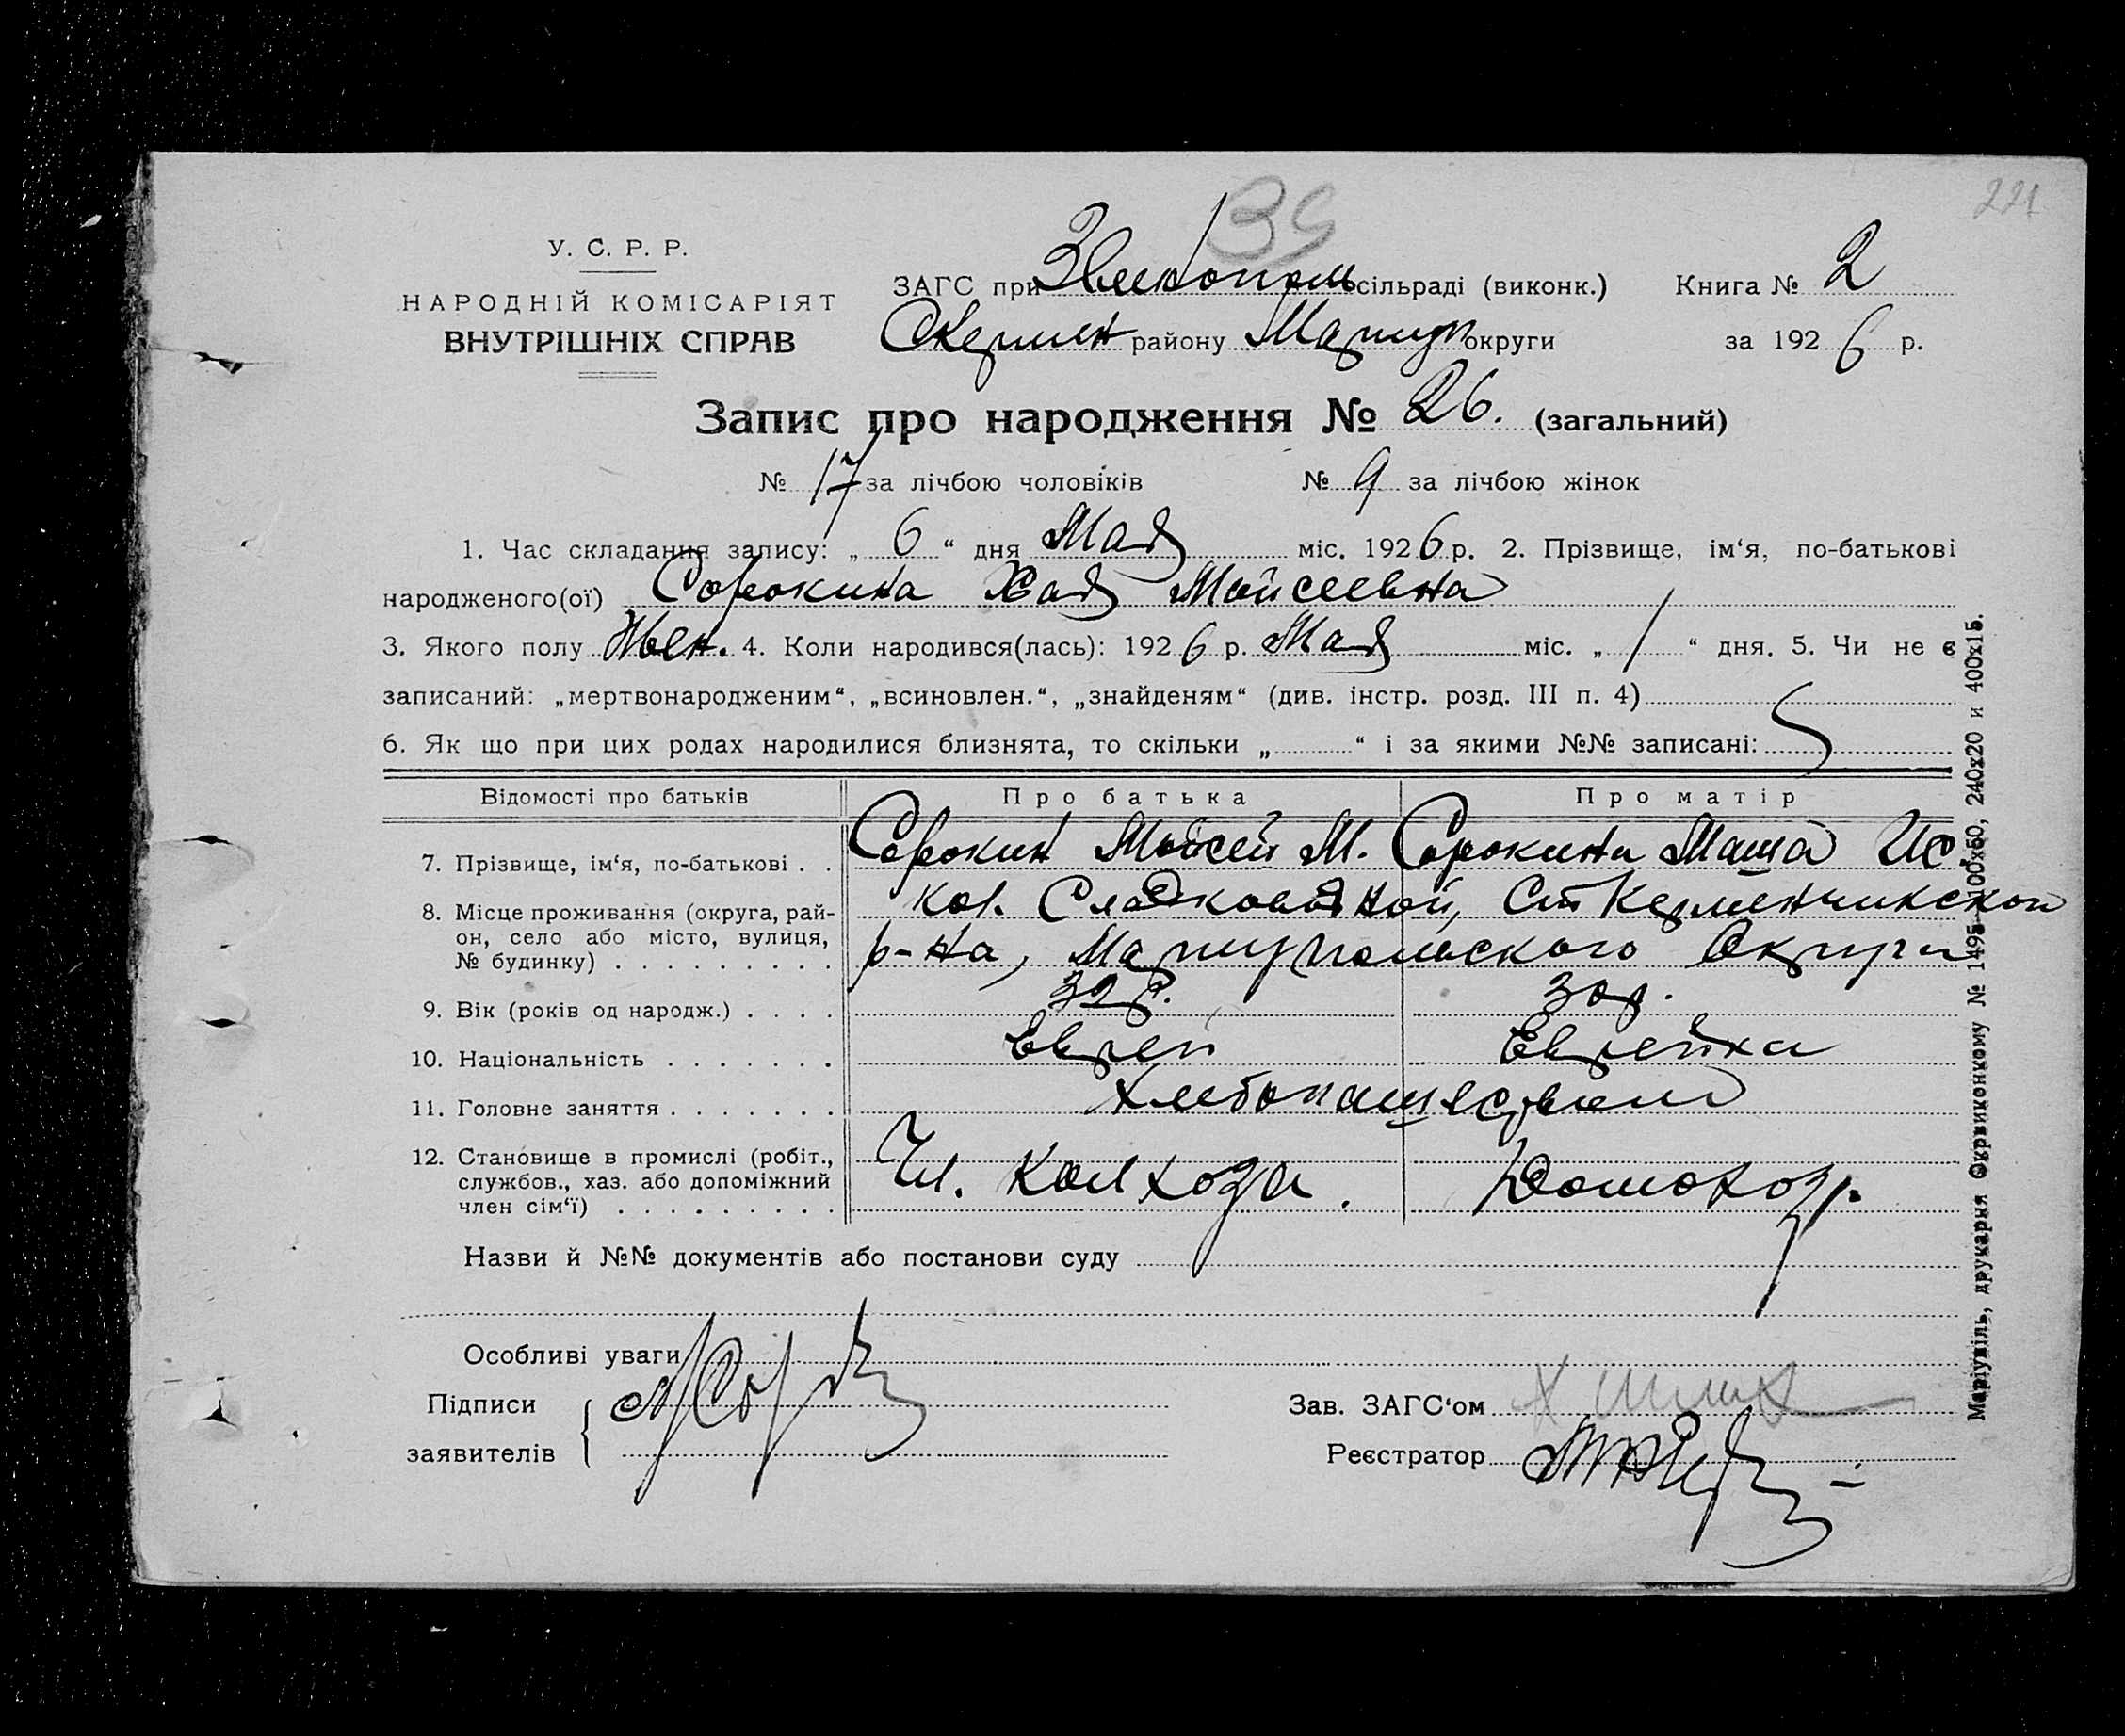 221
39
У. С. Р. Р.
НАРОДНІЙ КОМІСАРІЯТ
ВНУТРІШНІХ СПРАВ
ЗАГС при сільраді (виконк.) Книга № 2
району Мариуп округи за 1926 р.
Запис про народження № 26. (загальний)
№ 17 за лічбою чоловіків № 9 за лічбою жінок
1. Час складання запису: „ 6 “ дня Мая міс. 1926 р. 2. Прізвище, ім‘я, по-батькові
народженого(ої) Сорокина Хая Мойсеевна
3. Якого полу Жен. 4. Коли народився(лась): 1926 р. Мая міс. „ 1 “ дня. 5. Чи не є
записаний: „мертвонародженим“, „всиновлен.“, „знайденям“ (див. інстр. розд. III п. 4)
6. Як що при цих родах народилися близнята, то скільки „ “ і за якими №№ записані:
Відомості про батьків Про батька Про матір
7. Прізвище, ім‘я, по-батькові . . Сорокин Мойсей М. Сорокина Маша Ис.
8. Місце проживання (округа, рай- кол. Сладководной, Ст Керменчикскои
он, село або місто, вулиця, р-на, Мариупольского Округи
№ будинку) . . . . . . . . .
9. Вік (років од народж.) . . . . 32 р. 30 р.
10. Національність . . . . . . . Еврей Еврейка
11. Головне заняття . . . . . . . Хлебопашество
12. Становище в промислі (робіт., Чл. Колхоза. Домохоз.
службов., хаз. або допоміжний
член сім‘ї) . . . . . . . . .
Назви й №№ документів або постанови суду
Особливі уваги
Підписи
заявителів
Зав. ЗАГС‘ом
Реєстратор
Маріупіль, друкарня Окрвиконкому № 1495—100х50, 240х20 и 400х15.